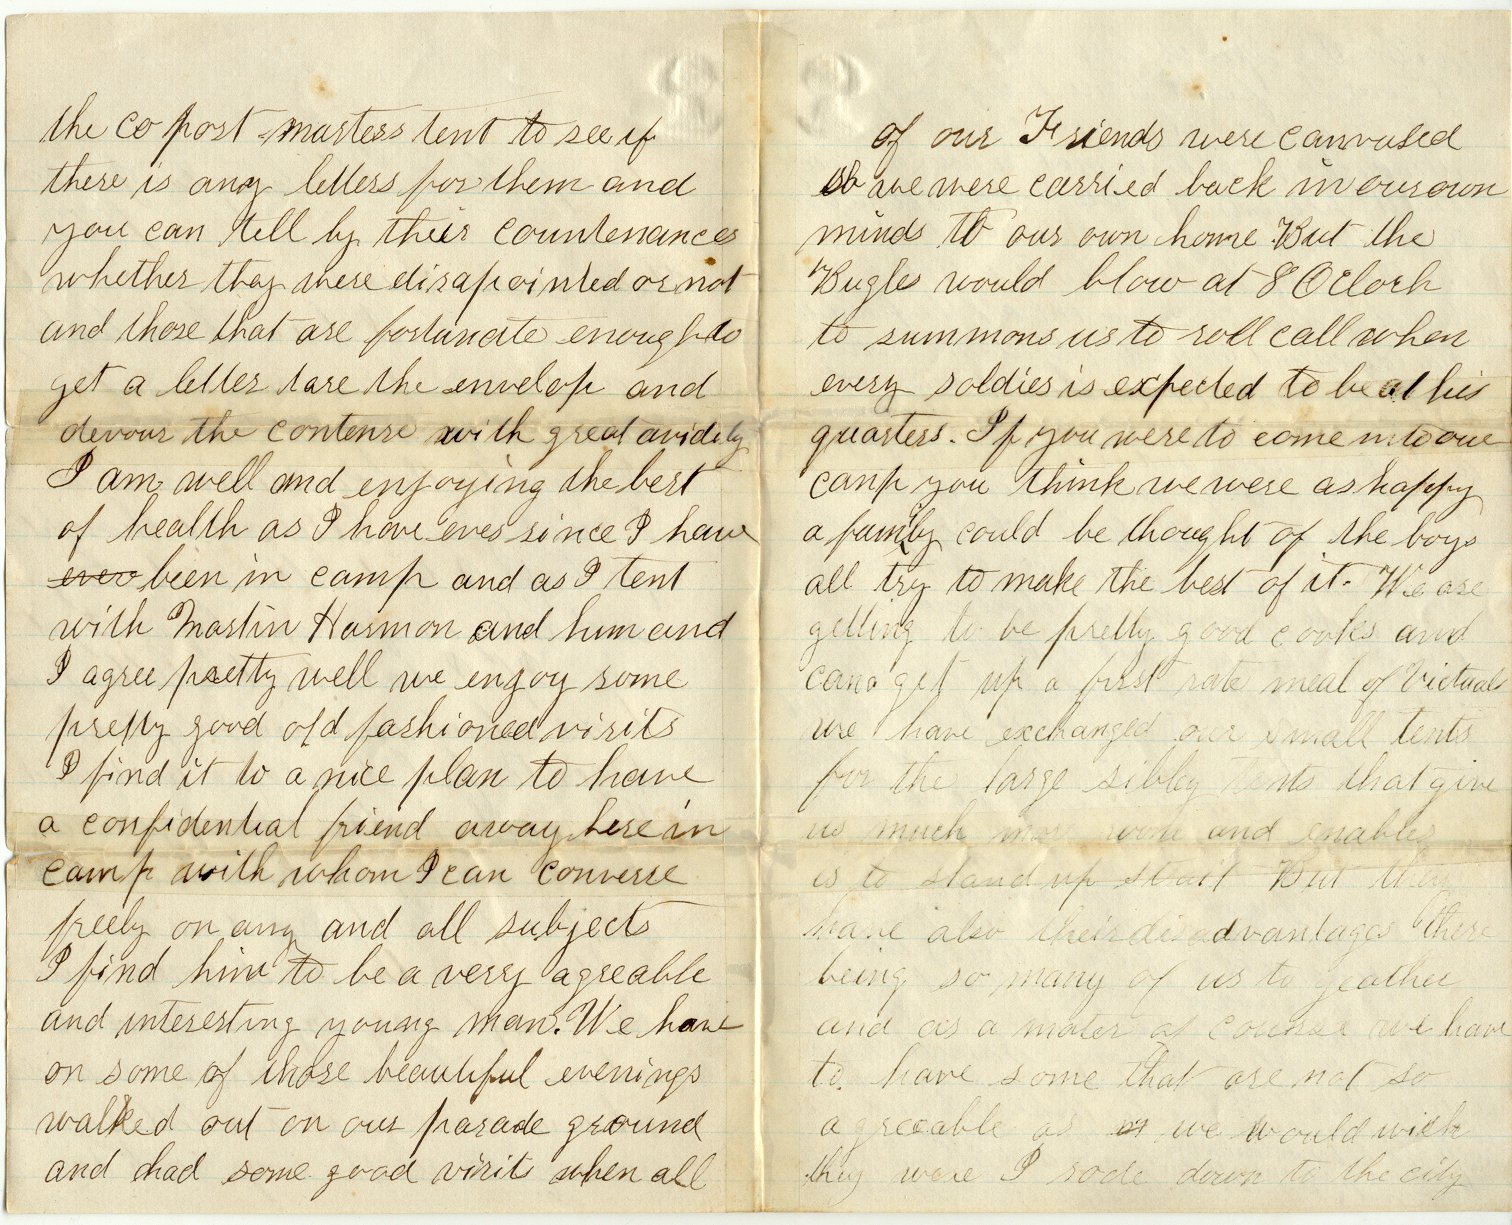 the co post masters tent to see if
there is any letters for them and
you can tell by their countenances
whether they were disapointed or not
and those that are fortunate enough to
get a letter tare the envelop and
devour the contense with great avidity
I am well and enjoying the best
of health as I have ever since I have
ever been in camp and as I tent
with Martin Harmon and him and
I agree pretty well we enjoy some
pretty good old fashioned visits
I find it to a nice plan to have
a confidential friend away here in
camp with whom I can converse
freely on any and all subjects
I find him to be a very agreable
and interesting young man. We have
on some of those beautiful evenings
walked out on our parade ground
and had some good visits when all
of our Friends were canvased
so we were carried back in our own
minds to our own home But the
Bugles would blow at 8 Oclock
to summons us to roll call when
every soldier is expected to be at his
quarters. If you were to come into our
camp you think we were as happy
a family could be thought of the boys
all try to make the best of it. We are
getting to be pretty good cooks and
can get up a first rate meal of victuals
we have exchanged our small tents
for the large sibley tents that give
us much more room and enables
us to stand up strait But they
have also their disadvantages there
being so many of us to geather
and as a mater of course we have
to have some that are not so
agreeable as we would wish
they were I rode down to the city